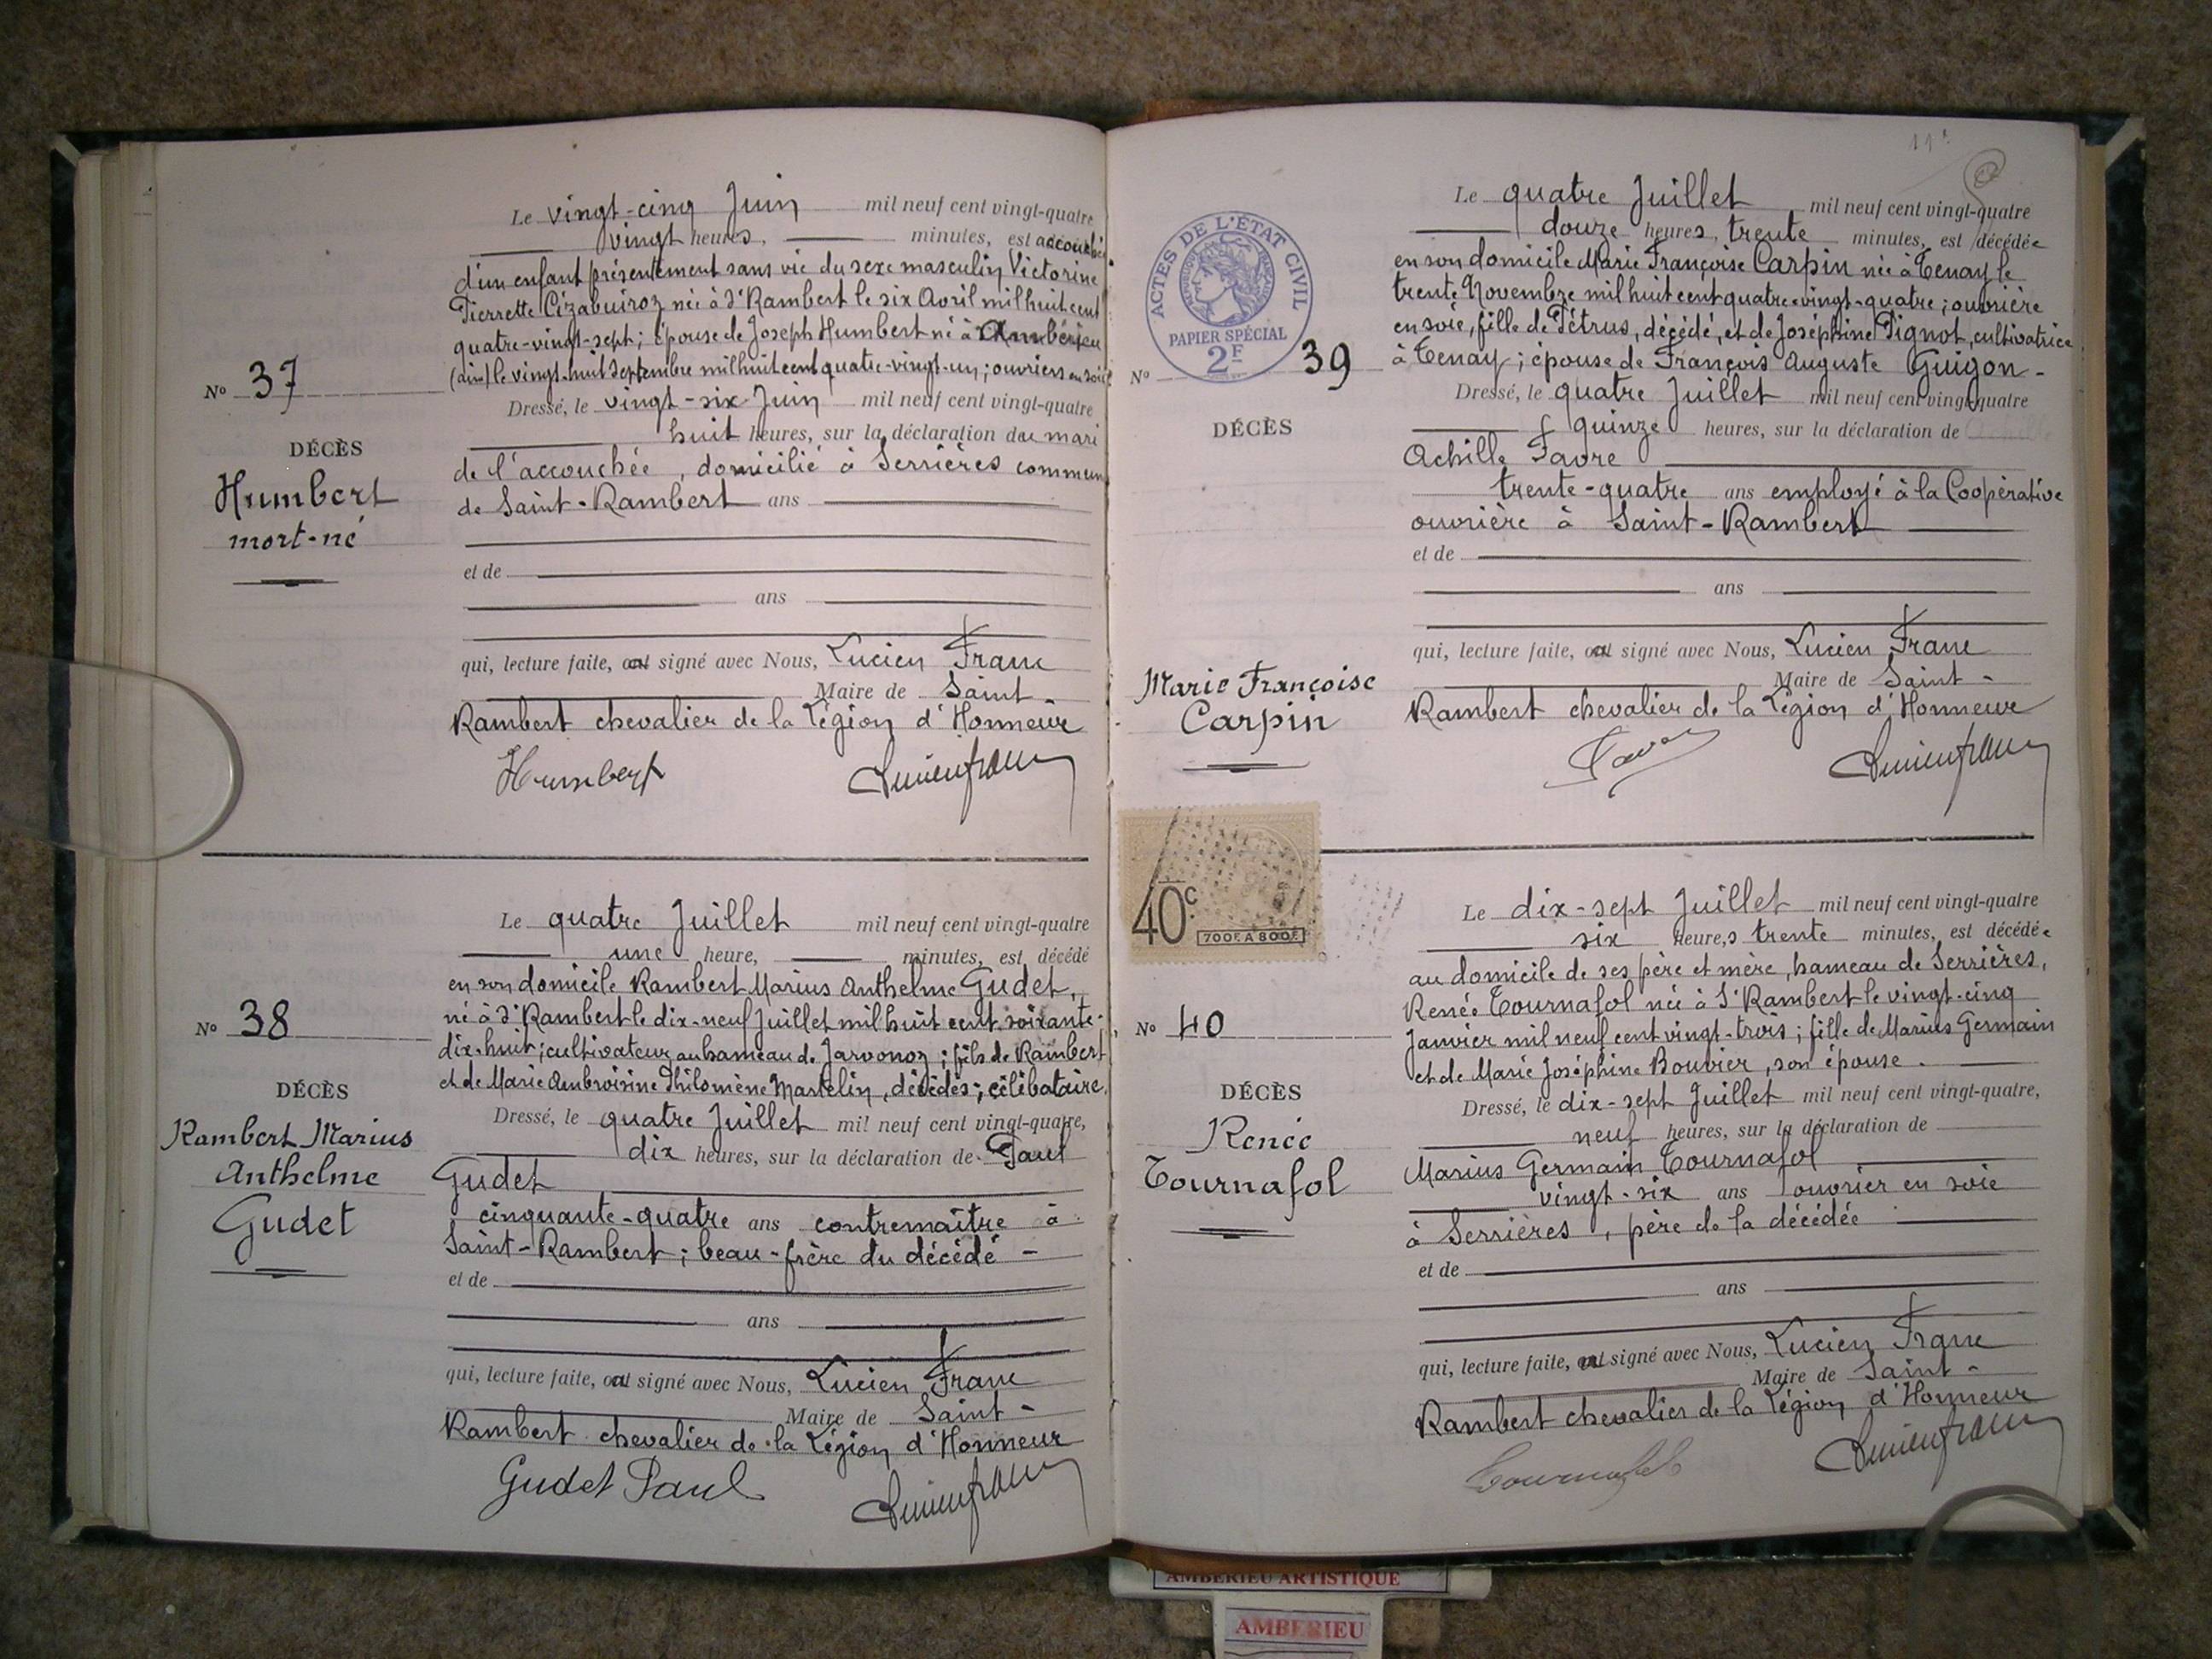 Le vingt-cinq Juin mil neuf cent vingt-quatre
vingt heures, minutes, est accouchée
d'un enfant présentement sans vie du sexe masculin Victorine
Pierrette Cizabuiroz née à St Rambert le six Avril mil huit cent
quatre-vingt-sept; épouse de Joseph Humbert né à Ambérieu
(ain) le vingt-huit Septembre mil huit cent quatre-vingt-un; ouvriers en soie
No 37
Dressé, le vingt-six Juin mil neuf cent vingt-quatre
huit heures, sur la déclaration du mari
DÉCÈS
de l'accouchée, domicilié à Serrières commune
Humbert
de Saint-Rambert ans
mort-né
et de
ans
qui, lecture faite, a signé avec Nous, Lucien Franc
Maire de Saint-
Rambert chevalier de la Légion d'Honneur
Humbert Lucien franc
Le quatre Juillet mil neuf cent vingt-quatre
une heure, minutes, est décédé
en son domicile Rambert Marius Anthelme Gudet,
né à St Rambert le dix-neuf Juillet mil huit cent soixante-
No 38
dix-huit; cultivateur au hameau de Javonoz; fils de Rambert
et de Marie Ambroisine Philomène Martelin, décédés; célibataire.
DÉCÈS
Dressé, le quatre Juillet mil neuf cent vingt-quatre,
Rambert Marius
dix heures, sur la déclaration de Paul
Anthelme
Gudet
Gudet
cinquante-quatre ans contremaître à
Saint-Rambert; beau-frère du décédé -
et de
ans
qui, lecture faite, a signé avec Nous, Lucien Franc
Maire de Saint-
Rambert chevalier de la Légion d'Honneur
Gudet Paul Lucien franc
ACTES DE L'ÉTAT CIVIL
REPUBLIQUE FRANÇAISE
PAPIER SPÉCIAL
2F
Le quatre Juillet mil neuf cent vingt-quatre
douze heures, trente minutes, est décédée
en son domicile Marie Françoise Carpin née à Tenay le
trente Novembre mil huit cent quatre-vingt-quatre; ouvrière
en soie, fille de Pétrus, décédé, et de Joséphine Pignot, cultivatrice
No 39
à Tenay; épouse de François Auguste Guigon-
Dressé, le quatre Juillet mil neuf cent vingt-quatre
DÉCÈS
quinze heures, sur la déclaration de
Achille Favre
trente-quatre ans employé à la Coopérative
ouvrière à Saint-Rambert
et de
ans
qui, lecture faite, a signé avec Nous, Lucien Franc
Marie Françoise
Maire de Saint-
Carpin
Rambert chevalier de la Légion d'Honneur
Favre Lucien franc
40c
700F. A 800F.
Le dix-sept Juillet mil neuf cent vingt-quatre
six heures trente minutes, est décédée
au domicile de ses père et mère, hameau de Serrières,
Renée Tournafol née à St Rambert le vingt-cinq
No 40
Janvier mil neuf cent vingt-trois; fille de Marius Germain
et de Marie Joséphine Bouvier, son épouse.
DÉCÈS
Dressé, le dix-sept Juillet mil neuf cent vingt-quatre,
Renée
neuf heures, sur la déclaration de
Tournafol
Marius Germain Tournafol
vingt-six ans ouvrier en soie
à Serrières, père de la décédée
et de
ans
qui, lecture faite, a signé avec Nous, Lucien Franc
Maire de Saint-
Rambert chevalier de la Légion d'Honneur
Tournafol Lucien franc
AMBERIEU ARTISTIQUE
AMBERIEU